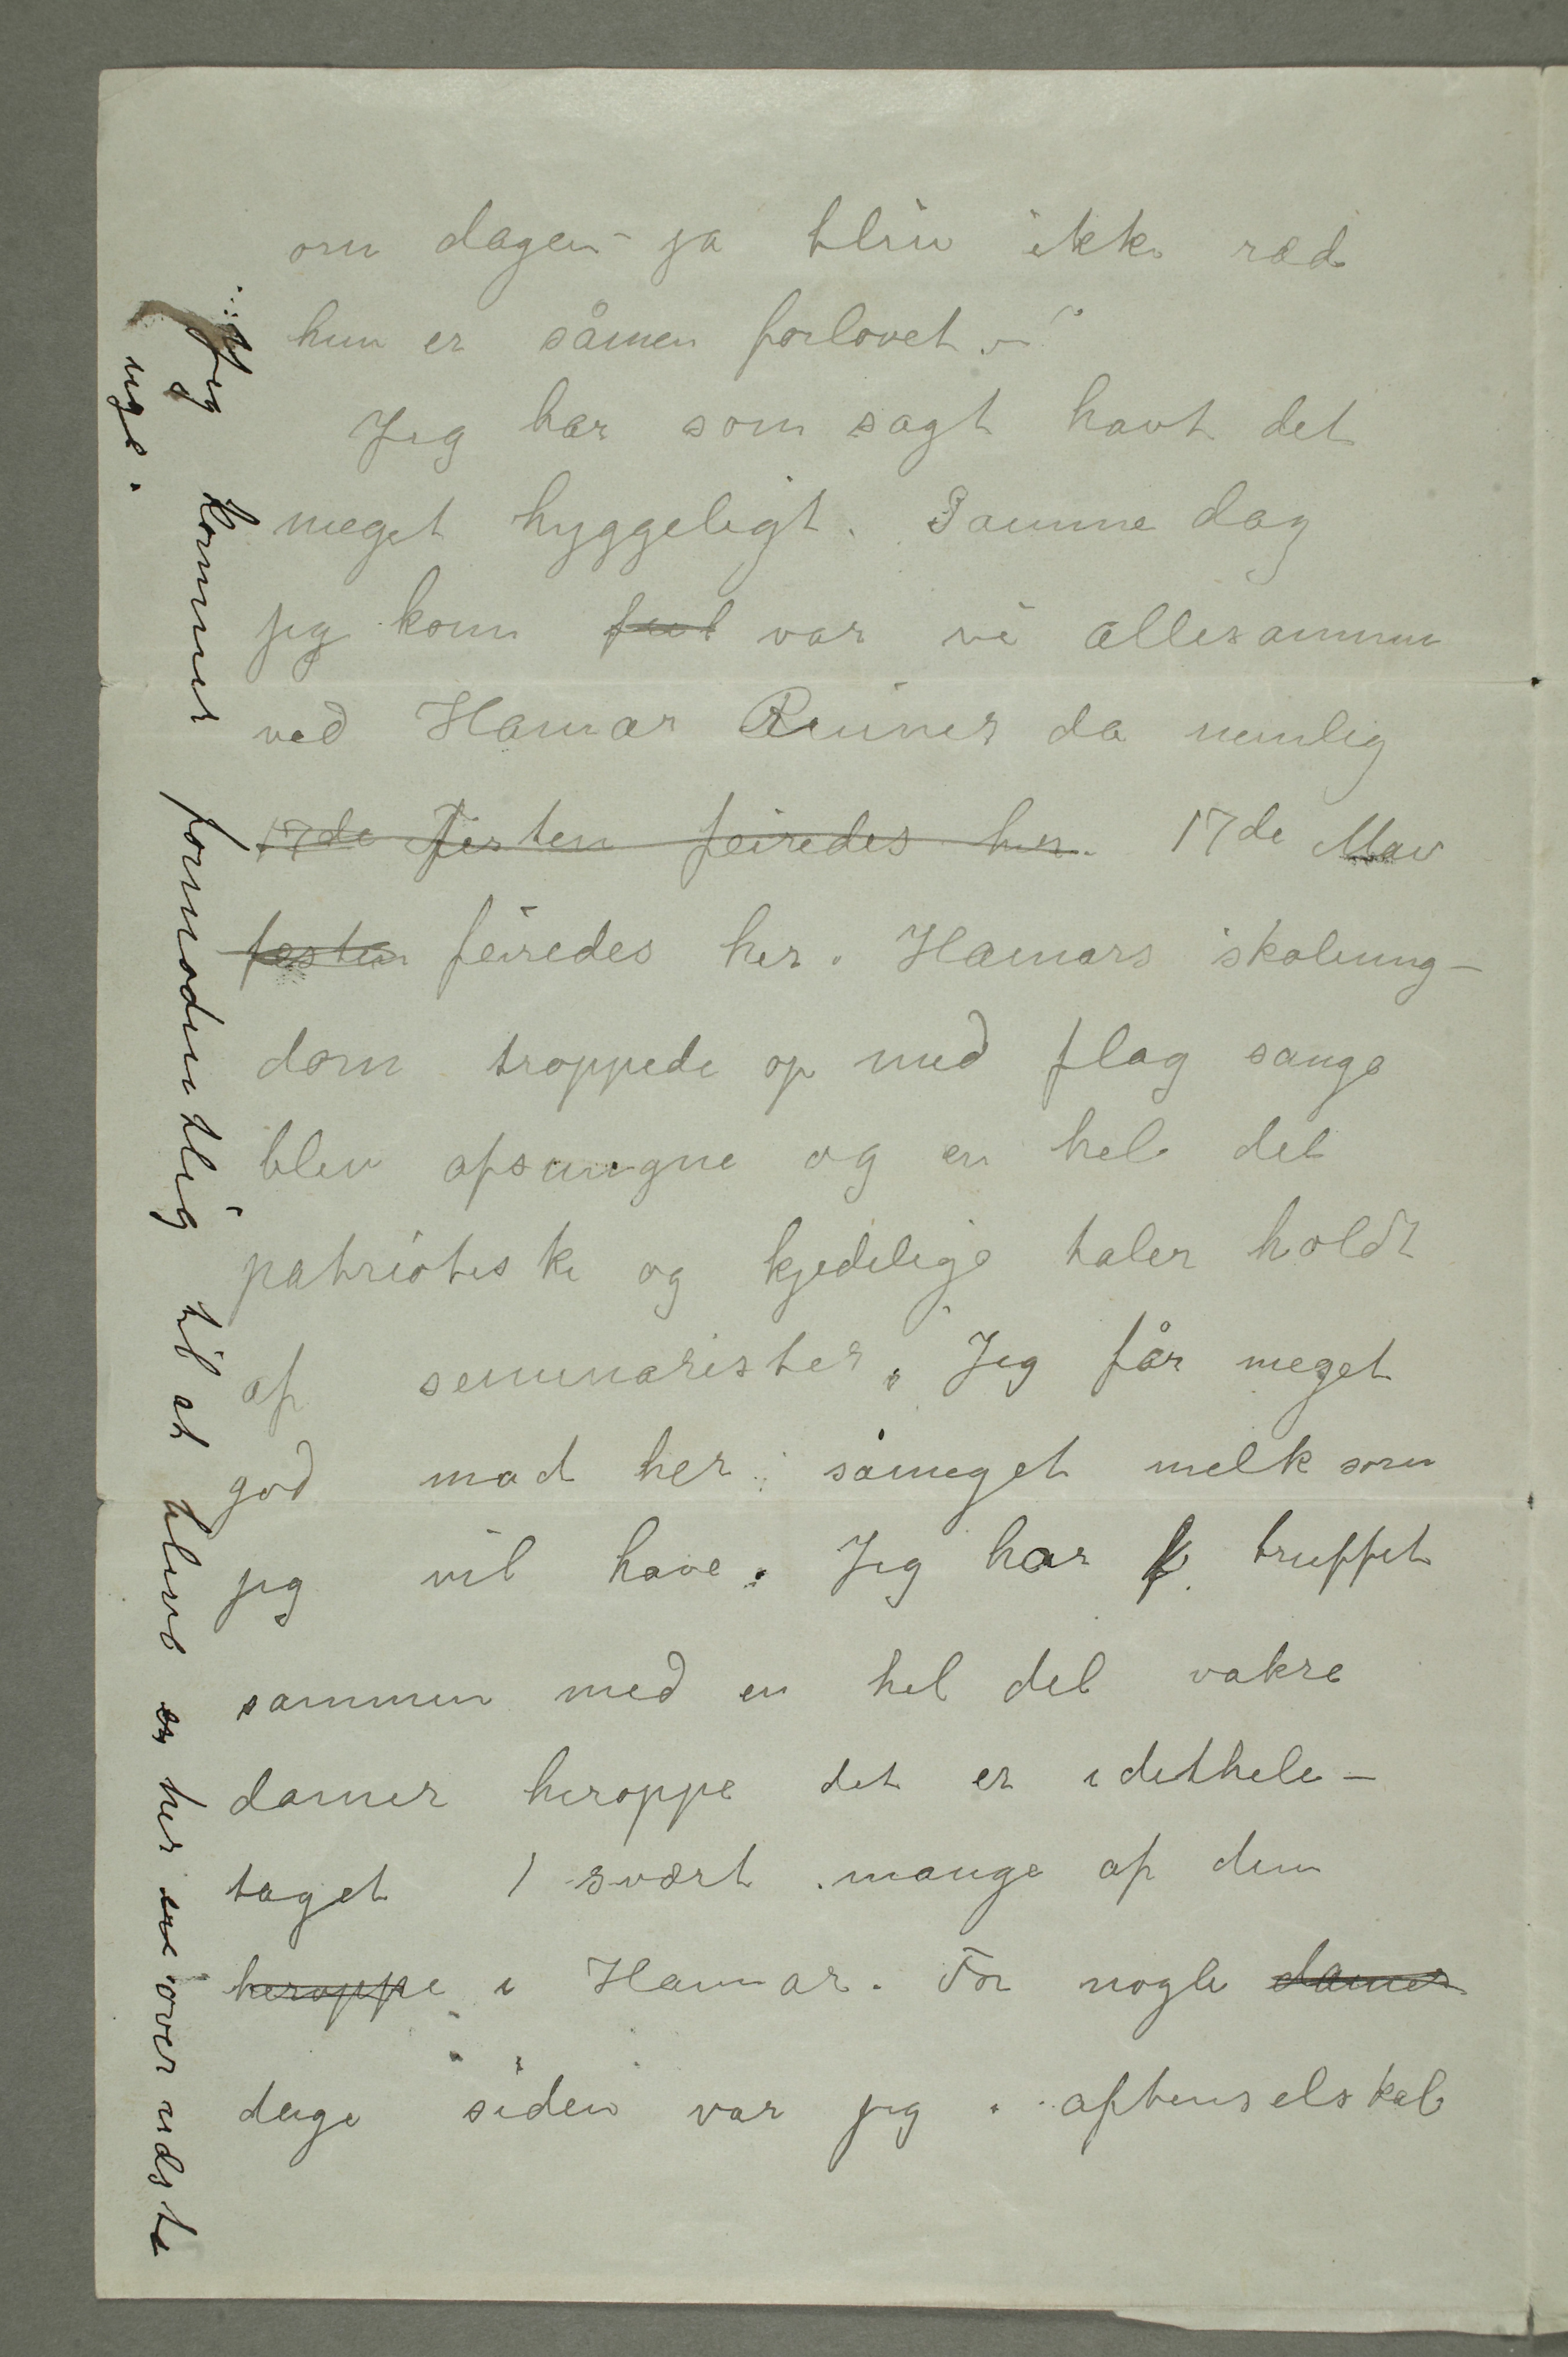 om dagen – ja bliv ikke ræd
hun er såmen forlovet. –
Jeg har som sagt havt det
meget hyggeligt. Samme dag
jeg kom var vi allesammen
ved Hamar Ruiner da nemlig
17de Festen feiredes her. 17de Mai
festen feiredes her. Hamars skoleung–
dom troppede op med flag sange
blev afsungne og en hel del
patriotiske og kjedelige taler holdt
af seminarister. Jeg får meget
god mad her såmeget melk som
jeg vil have. Jeg har truffet
sammen med en hel del vakre
damer heroppe det er idethele–
taget svært mange af dem
heroppe i Hamar. For nogle damer
dage siden var jeg i aftenselskab
Jeg kommer formodentlig til at blive her over næste
uge.